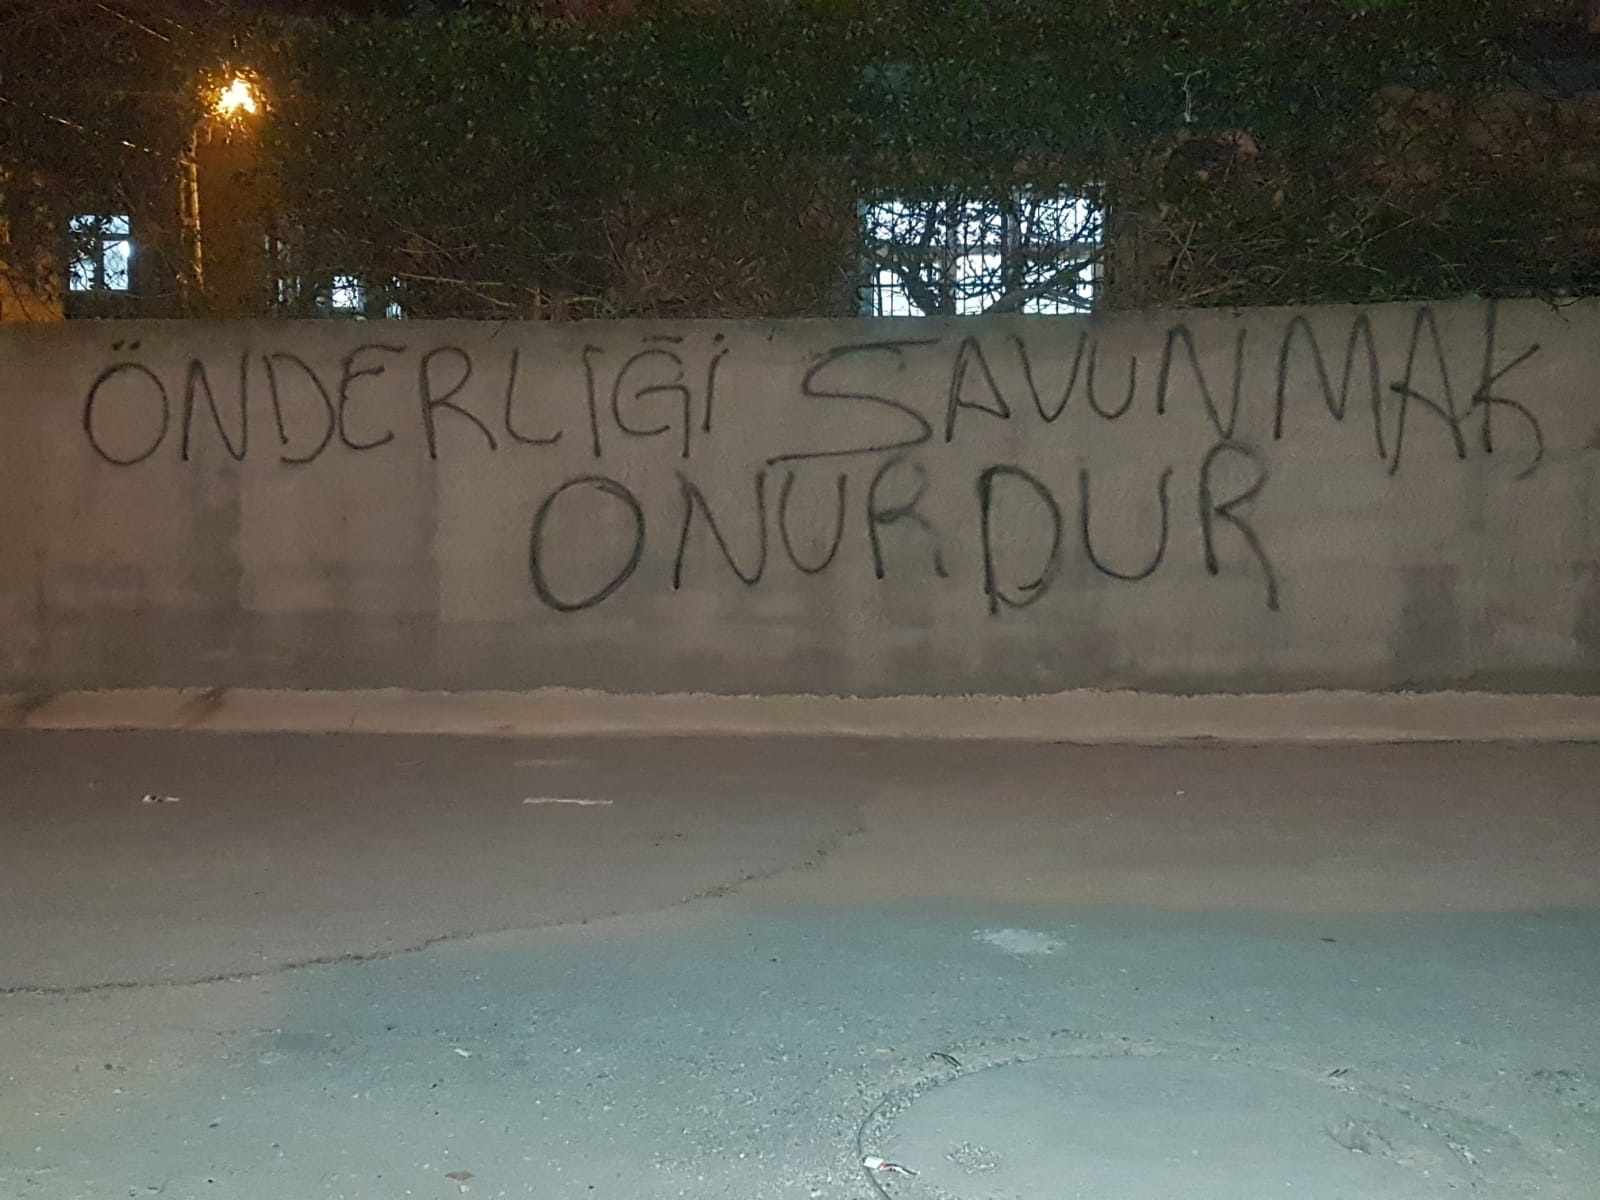 ÖNDERLIĞİ SAVUNMAK
ONURDUR